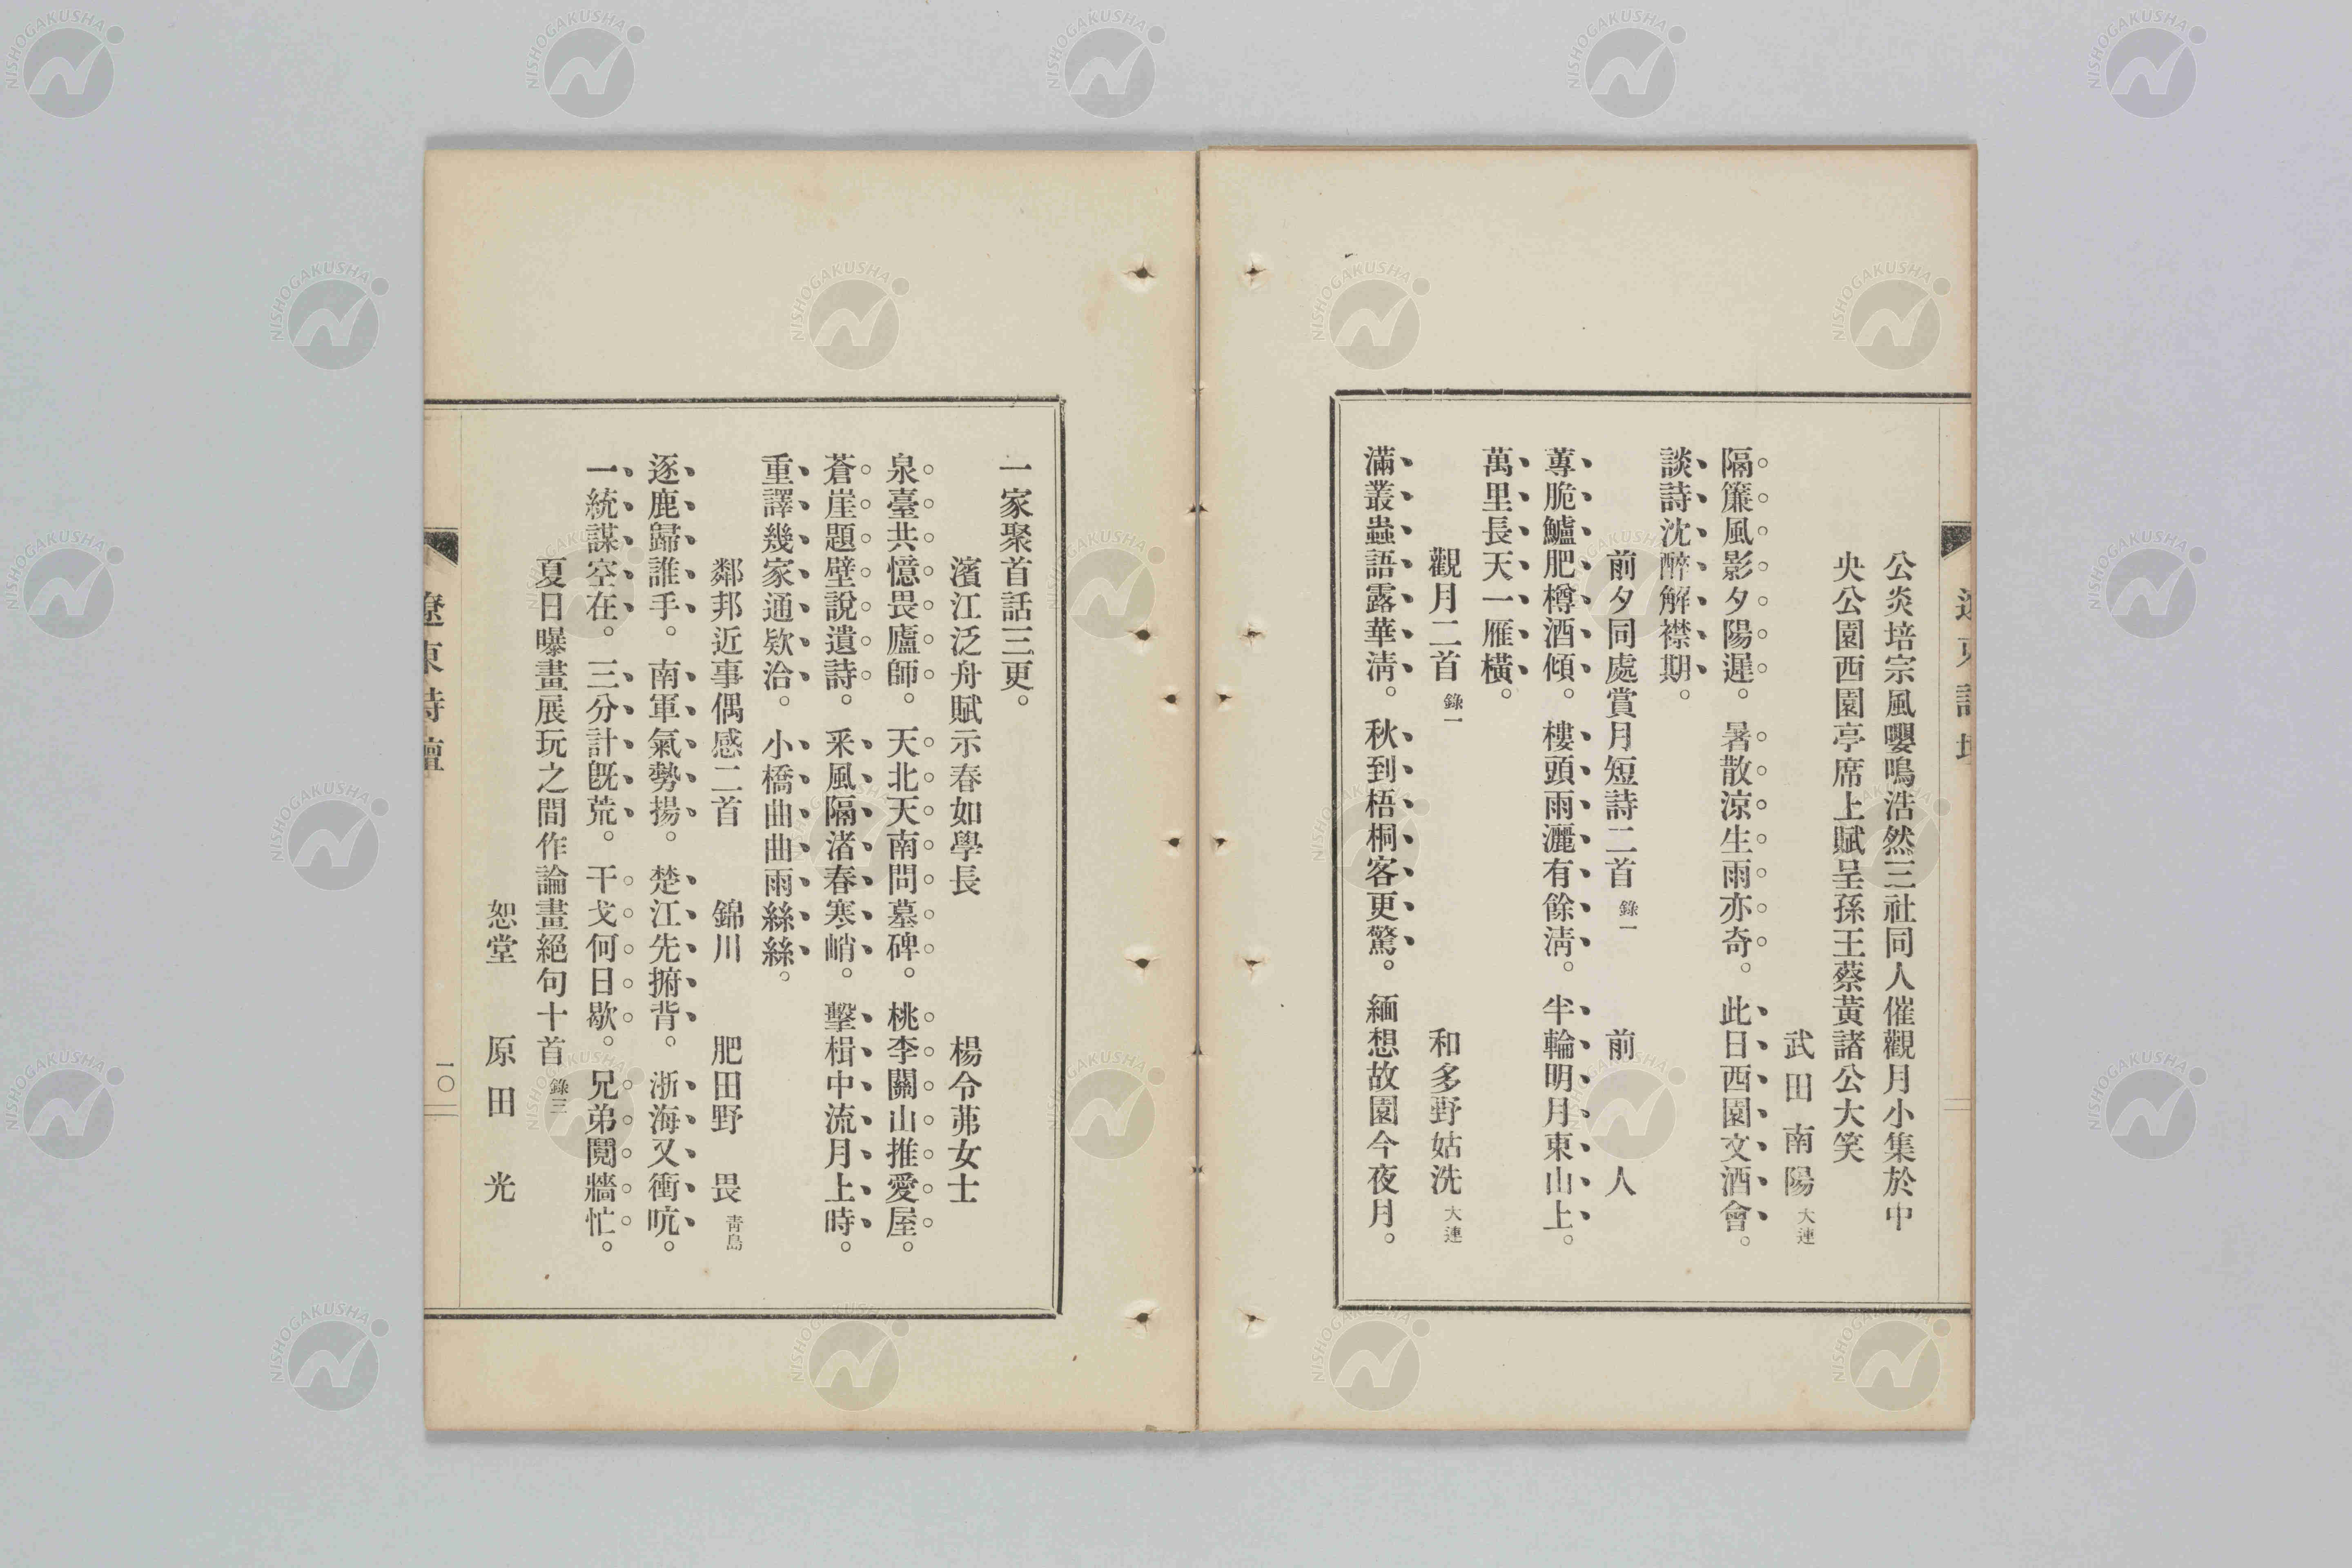 公炎培宗風嚶鳴浩然三社同人催觀月小集於中
央公園西園亭席上賦呈孫王蔡黃諸公大笑
武田南陽 大連
隔簾風影夕陽遲。暑散涼生雨亦奇。此日西園文酒會。
談詩沈醉解襟期。
前夕同處賞月短詩二首 錄一 前人
蓴脆鱸肥樽酒傾。樓頭雨灑有餘淸。半輪明月東山上。
萬里長天一雁橫。
觀月二首 錄一 和多野姑洗 大連
滿叢蟲語露華淸。秋到梧桐客更驚。緬想故園今夜月。
一家聚首話三更。
濱江泛舟賦示春如學長 楊令茀女士
泉臺共憶畏廬師。天北天南問墓碑。桃李關山推愛屋。
蒼崖題壁說遺詩。釆風隔渚春寒峭。擊楫中流月上時。
重譯幾家通欵洽。小橋曲曲雨絲絲。
鄰邦近事偶感二首 錦川 肥田野畏 靑島
逐鹿歸誰手。南軍氣勢揚。楚江先捬背。浙海又衝吭。
一統謀空在。三分計旣荒。干戈何日歇。兄弟鬩牆忙。
夏日曝畫展玩之間作論畫絕句十首 錄三
恕堂 原田光
遼東詩壇
一〇
NISHOGAKUSHA